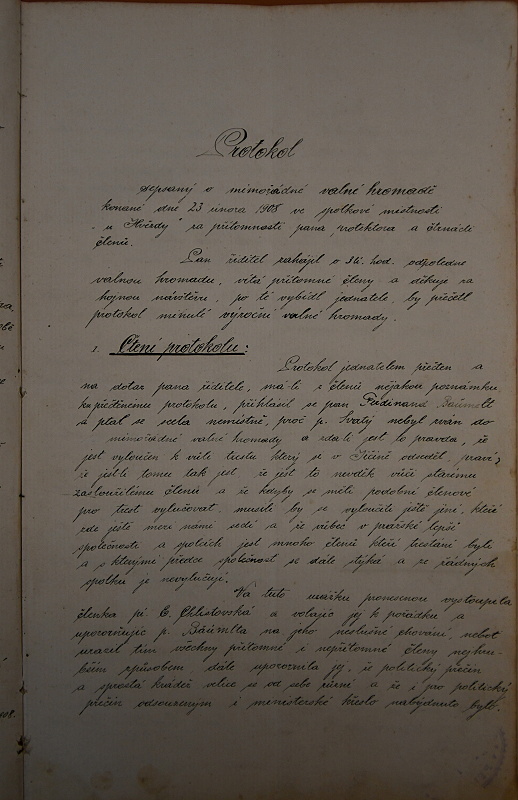 Protokol
sepsaný o mimořádné valné hromadě
konané dne 23 února 1908 ve spolkové místnosti
u Hvězdy za přítomnosti pana protektora a čtenáců
členů.
Pan ředitel zahájil o 3½ hod. odpoledne
valnou hromadu, vítá přítomné členy a děkuje za
hojnou návštěvu, po té vybídl jednatele, by přečetl
protokol minulé výroční valné hromady.
1. Čtení protokolu:
Protokol jednatelem přečten a
na dotaz pana ředitele, má-li z členů nějakou poznámku
ku přečtenému protokolu, přihlásil se pan Ferdinand Bäumlt
a ptal se zcela nemístně, proč p. Svatý nebyl zván do
mimořádné valné hromady a zda-li jest to pravda, že
jest vyloučen k vůli trestu který si v Jičíně odseděl, praví,
že jest-li tomu tak jest, že jest to nevděk vůči starému
zasloužilému členu a že kdyby se měli podobní členové
pro trest vylučovat, museli by se vyloučit ještě jiní, kteří
zde ještě mezi námi sedí a že vůbec v pražské lepší
společnosti a spolcích jest mnoho členů kteří trestáni byli
a s kterými předce společnost se dále stýká a ze řádných
spolků je nevylučují.
Na tuto urážku pronesenou vystoupila
členka pí. E. Chlistovská a volajíc jej k pořádku a
upozorňujíc p. Bäumlta na jeho neslušné chování, neboť
urazil tím všechny přítomné i nepřítomné členy nejhru-
bším způsobem, dále upozornila jej, že politický přečin
a sprostá krádež velice se od sebe různí a že i pro politický
přečin odsouzeným i ministerské křeslo nabýdnuto bylo.